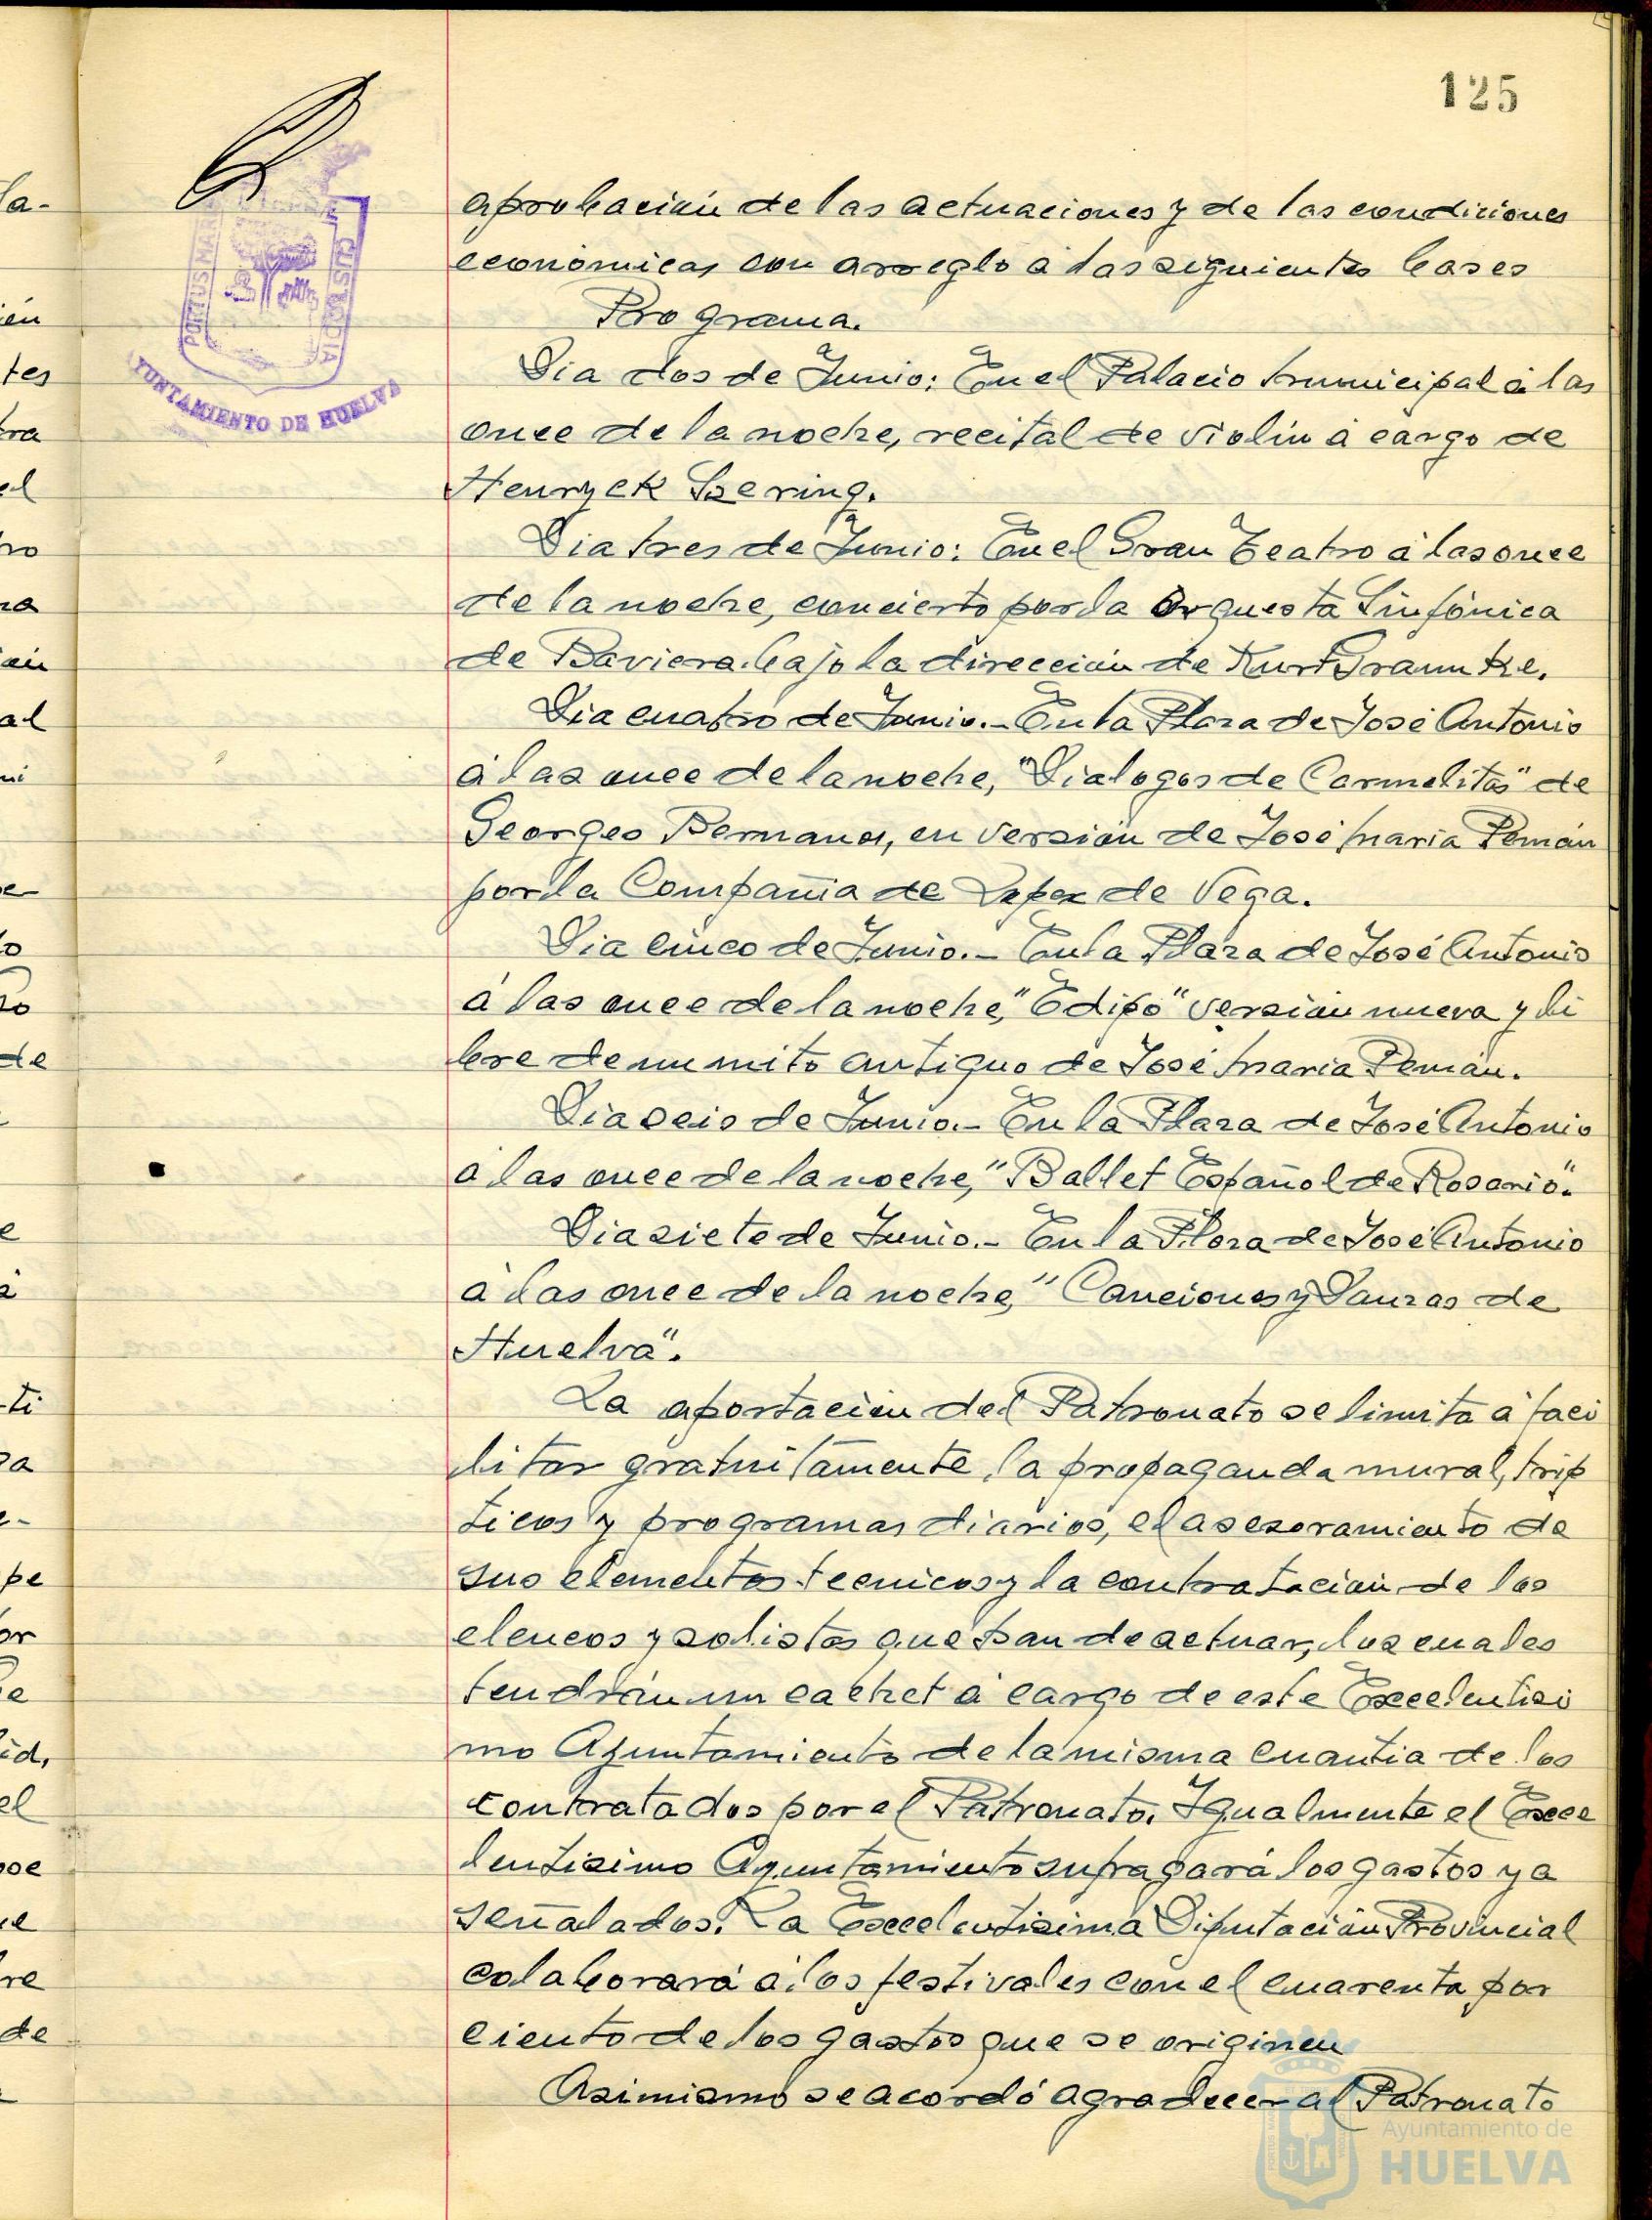 125
PORTUS MAR
CUSTODIA
YUNTAMIENTO DE HUELVA
aprobación de las actuaciones y de las condiciones
económicas con arreglo á las siguientes bases
Programa.
Dia dos de Junio: En el Palacio Municipal á las
once de la noche, recital de violin á cargo de
Henryek Szering.
Dia tres de Junio: En el Gran Teatro á las once
de la noche, concierto por la Orquesta Sinfónica
de Baviera bajo la dirección de Kurt Graunke.
Dia cuatro de Junio.- En la Plaza de José Antonio
á las once de la noche, "Dialogos de Carmelitas" de
Georges Bernanos, en versión de José Maria Pemán
por la Compañia de Lope de Vega.
Dia cinco de Junio.- En la Plaza de José Antonio
á las once de la noche, "Edipo" versión nueva y li
bre de un mito antiguo de José Maria Pemán.
Dia seis de Junio.- En la Plaza de José Antonio
á las once de la noche, "Ballet Español de Rosario".
Dia siete de Junio.- En la Plaza de José Antonio
á las once de la noche, "Canciones y Danzas de
Huelva".
La aportación del Patronato se limita á faci
litar gratuitamente la propaganda mural, trip
ticos y programas diarios, el asesoramiento de
sus elementos tecnicos y la contratación de los
elencos y solistas que han de actuar, los cuales
tendrán un cachet á cargo de este Excelentisi
mo Ayuntamiento de la misma cuantia de los
contratados por el Patronato. Igualmente el Exce
lentisimo Ayuntamiento sufragará los gastos ya
señalados. La Excelentisima Diputación Provincial
colaborará á los festivales con el cuarenta por
ciento de los gastos que se originen
Asimismo se acordó agradecer al Patronato
Ayuntamiento de
HUELVA